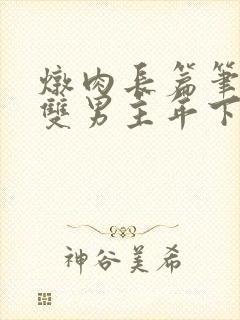 燉肉長篇筆
雙男主年下
神谷美希